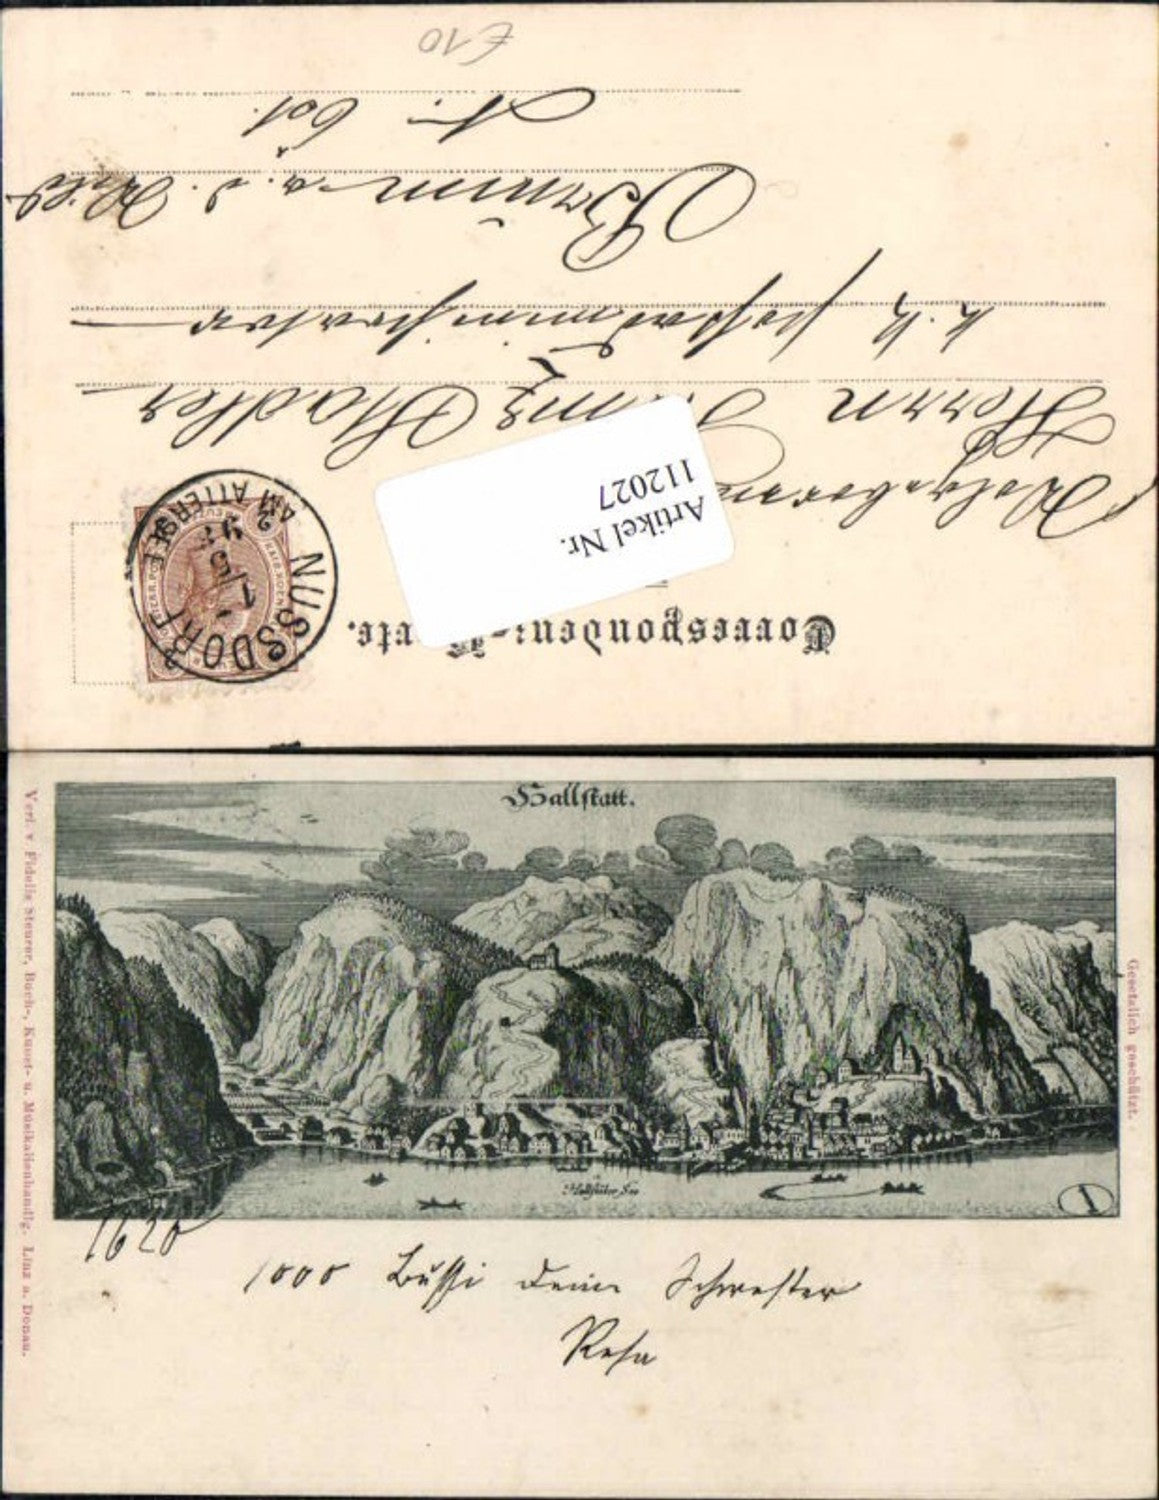 €10
Correspondenz-Karte.
Artikel Nr.
112027
NUSSDORF
AM ATTERSEE
1
5
98
Wohlgeboren
Herrn Franz Stadler
k. k. Postadministrator
Braunau a. d.
Nr. 601.
Hallstatt.
Hallstätter See
1
Verl. v. Fidelis Steurer, Buch-, Kunst- u. Musikalienhandlg. Linz a. Donau.
Gesetzlich geschützt.
1620
1000 Bussi Deine Schwester
Resa